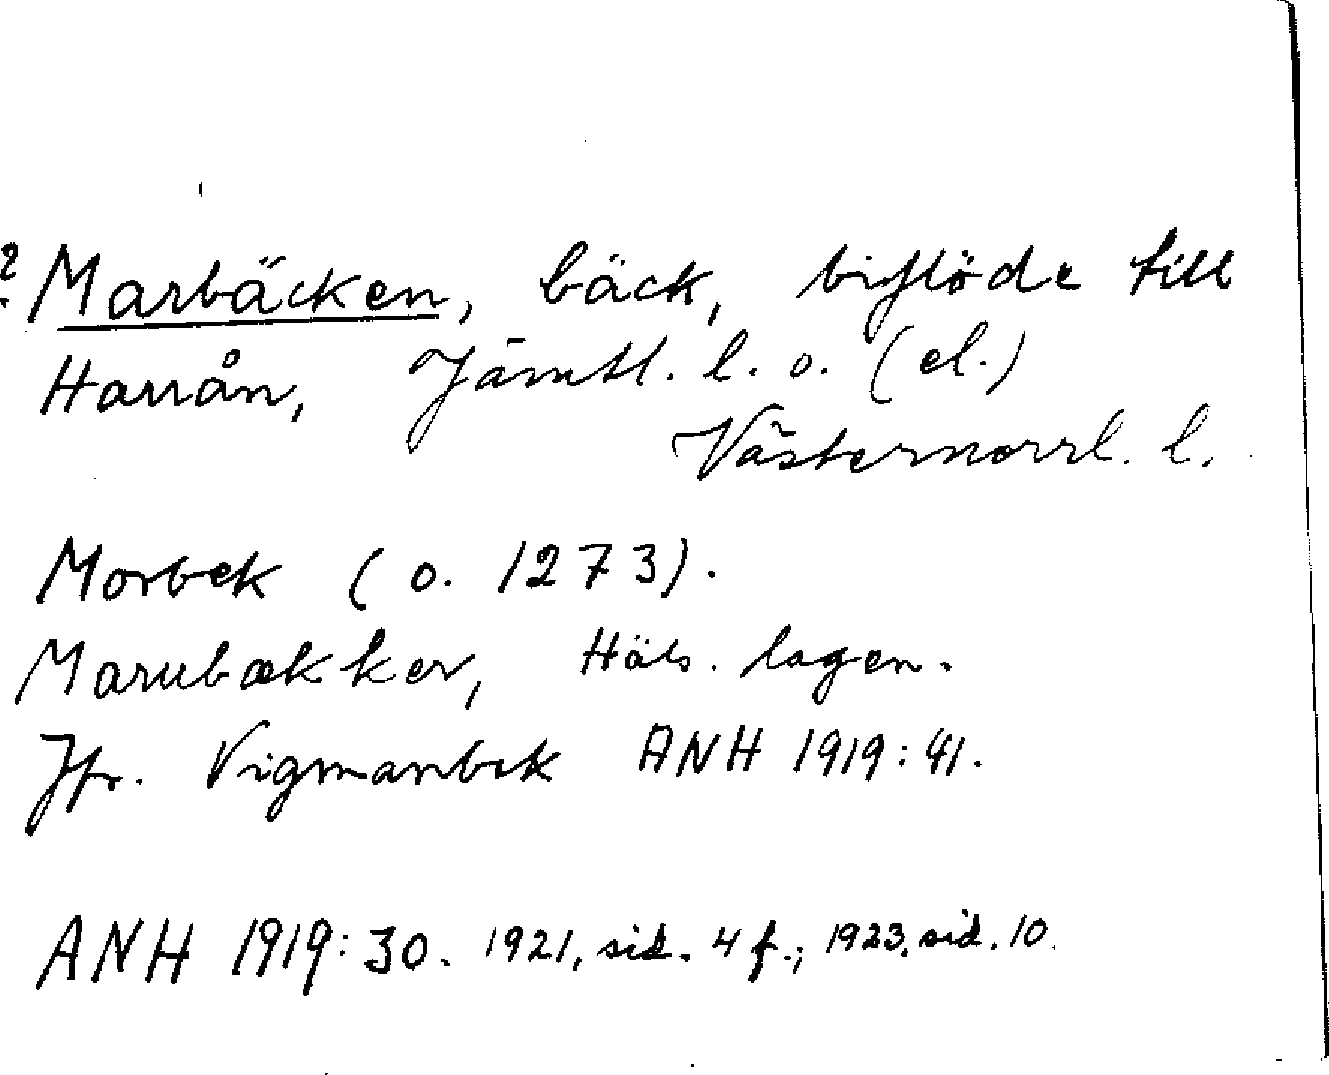 ? Marbäcken, bäck, biflöde till
Harrån, Jämtl. l. o. (el.)
Västernorrl. l.
Morbek (o. 1273).
Marubækker, Häls. lagen.
Jfr. Vigmanbek ANH 1919: 41.
ANH 1919: 30. 1921, sid. 4 f.; 1923, sid. 10.